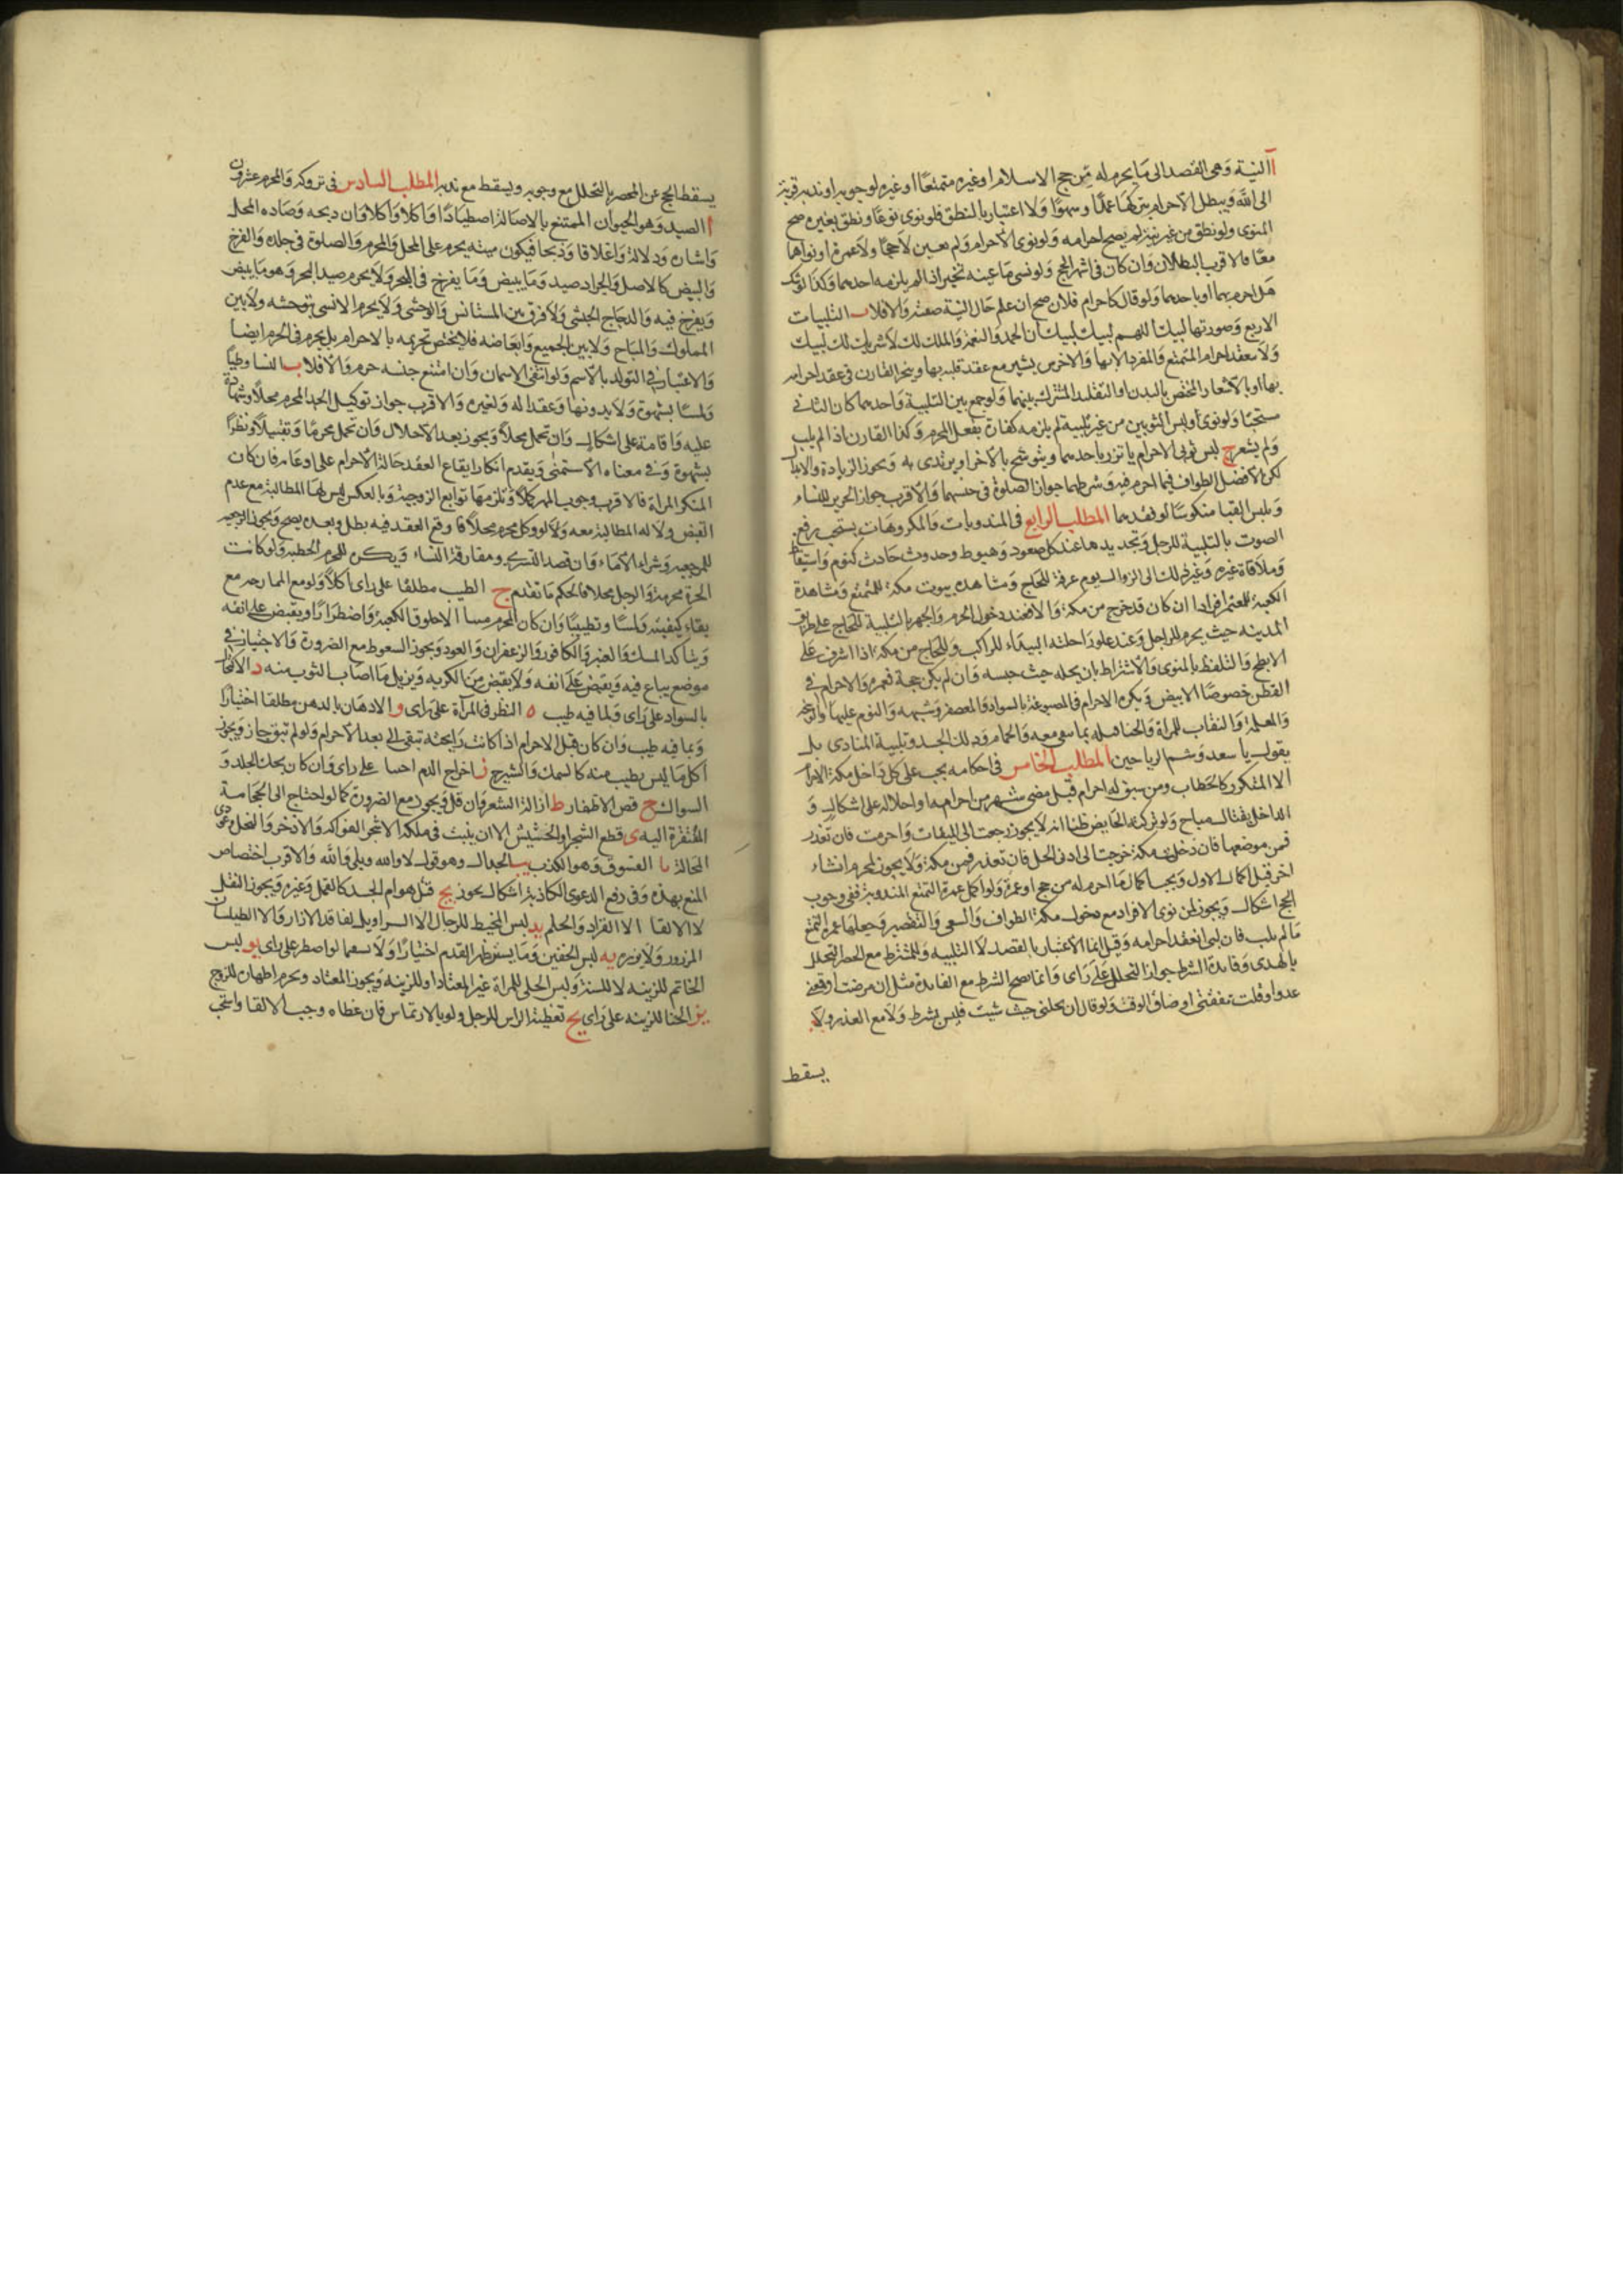 آ النية وهى القصد الى ما يحرم له من حج الاسلام او غيره متمتعا او غيره لوجوبه او ندبه قربة
الى الله ويبطل الاحرام بتركها عمدا وسهوا ولا اعتبار بالنطق فلو نوى نوعا ونطق بغيره صح
المنوى ولو نطق من غير نية لم يصح احرامه ولو نوى الاحرام ولم يعين لا حجا ولا عمرة او نواهما
معا فالاقرب البطلان وان كان فى اشهر الحج ولو نسى ما عينه تخير اذا لم يلزمه احدهما وكذا لو شك
هل احرم بهما او باحدهما ولو قال كاحرام فلان صح ان علم حال النية صفته والا فلا ب التلبيات
الاربع وصورتها لبيك اللهم لبيك لبيك ان الحمد والنعمة والملك لك لا شريك لك لبيك
ولا ينعقد احرام المتمتع والمفرد الا بها والاخرس يشير مع عقد قلبه بها ويتخير القارن فى عقد احرامه
بها او بالاشعار المختص بالبدن او التقليد المشترك بينهما ولو جمع بين التلبية واحدهما كان الثانى
مستحبا ولو نوى ولبس الثوبين من غير تلبية لم يلزمه كفارة بفعل المحرم وكذا القارن اذا لم يلب
ولم يشعر ج لبس ثوبى الاحرام ياتزر باحدهما ويتوشح بالآخر او يرتدى به ويجوز الزيادة والابدال
لكن الافضل الطواف فيما احرم فيه وشرطهما جواز الصلوة فى جنسهما والاقرب جواز الحرير للنساء
ويلبس القبا منكوسا لو فقدهما المطلب الرابع فى المندوبات والمكروهات يستحب رفع
الصوت بالتلبية للرجل وتجديدها عند كل صعود وهبوط وحدوث حادث كنوم واستيقاظ
وملاقاة غيره وغير ذلك الى الزوال يوم عرفة للحاج ومشاهدة بيوت مكة للمتمتع ومشاهدة
الكعبة للمعتمر افرادا ان كان قد خرج من مكة والا فعند دخول الحرم والجهر بالتلبية للحاج على طريق
المدينه حيث يحرم للراجل وعند علو راحلته البيداء للراكب وللحاج من مكة اذا اشرف على
الابطح والتلفظ بالمنوى والاشتراط بان يحله حيث حبسه وان لم يكن حجة فعمرة والاحرام فى
القطن خصوصا الابيض ويكره الاحرام فى المصبوغة بالسواد والمعصفر وشبهه والنوم عليها والوسخة
والمعلمة والنقاب للمراة والحنا قبله بما يبقى معه والحمام ودلك الجسد وتلبية المنادى بل
يقول يا سعد وشم الرياحين المطلب الخامس فى احكامه يجب على كل داخل مكة الاحرام
الا المتكرر كالحطاب ومن سبق له احرام قبل مضى شهر من احرامه او احلاله على اشكال و
الداخل لقتال مباح ولو تركته الحايض ظنا انه لا يجوز رجعت الى الميقات واحرمت فان تعذر
فمن موضعها فان دخلت مكة خرجت الى ادنى الحل فان تعذر فمن مكة ولا يجوز لمحرم انشاء
اخر قبل اكمال الاول ويجب اكمال ما احرم له من حج او عمرة ولو اكمل عمرة التمتع المندوبة ففى وجوب
الحج اشكال ويجوز لمن نوى الافراد مع دخول مكة الطواف والسعى والتقصير وجعلها عمرة التمتع
ما لم يلب فان لبى انعقد احرامه وقيل انما الاعتبار بالقصد لا التلبيه وللمشترط مع الحصر التحلل
بالهدى وفايدة الشرط جواز التحلل على راى وانما يصح الشرط مع الفايدة مثل ان مرضت او وقعنى
عدو او قلت نفقتى او ضاق الوقت ولو قال ان يحلنى حيث شيت فليس بشرط ولا مع العذر ولا
يسقط
يسقط الحج عن المحصر بالتحلل مع وجوبه ويسقط مع ندبه المطلب السادس فى تروكه والمحرم عشرون
ا الصيد وهو الحيوان الممتنع بالاصالة اصطيادا واكلا وان ذبحه وصاده المحل
واشارة ودلالة واغلاقا وذبحا فيكون ميتة يحرم على المحل والمحرم والصلوة فى جلده والفرخ
والبيض كالاصل والجراد صيد وما يبيض وما يفرخ فى البحر ولا يحرم صيد البحر وهو ما يبيض
ويفرخ فيه والدجاج الحبشى ولا فرق بين المستانس والوحشى ولا يحرم الانسى بتوحشه ولا بين
المملوك والمباح ولا بين الجميع وابعاضه فلا يختص تحريمه بالاحرام بل يحرم فى الحرم ايضا
والاعتبار فى التولد بالاسم ولو انتفى الاسمان وان امتنع جنسه حرم والا فلا ب النسا وطيا
ولمسا بشهوة ولا بدونها وعقدا له ولغيره والاقرب جواز توكيل الجد المحرم محلا وشهادة
عليه واقامة على اشكال وان تحمل محلا ويجوز بعد الاحلال وان تحمل محرما وتقبيلا ونظرا
بشهوة وفى معناه الاستمنى ويقدم انكار ايقاع العقد حالة الاحرام على ادعائه فان كان
المنكر المراة فالاقرب وجوب المهر كملا ويلزمها توابع الزوجية وبالعكس ليس لها المطالبة مع عدم
القبض ولا له المطالبة معه ولو وكل محرم محلا فاوقع العقد فيه بطل وبعده يصح ويجوز الرجعه
للرجعيه وشراء الاماء وان قصد التسرى ومفارقة النساء ويكره للمحرم الخطبه ولو كانت
الحرة محرمة والرجل محلا فالحكم ما تقدم ج الطيب مطلقا على راى اكلا ولو مع الممازجه مع
بقاء كيفيته ولمسا وتطييبا وان كان المحرم ميتا الا خلوق الكعبه واضطرارا ويقبض على انفه
ويتاكد المسك والعنبر والكافور والزعفران والعود ويجوز السعوط مع الضرورة والاجتياز فى
موضع يباع فيه ويقبض على انفه ولا يقبض من الكريه ويزيل ما اصاب الثوب منه د الاكتحال
بالسواد على راى وبما فيه طيب ه النظر فى المرآة على راى و الادهان بالدهن مطلقا اختيارا
وبما فيه طيب وان كان قبل الاحرام اذا كانت رايحته تبقى الى بعد الاحرام ولو لم تبق جاز ويجوز
اكل ما ليس بطيب منه كالسمك والشيرج ز اخراج الدم اختيارا على راى وان كان بحك الجلد و
السواك ح قص الاظفار ط ازالة الشعر وان قل ويجوز مع الضرورة كما لو احتاج الى الحجامة
المفتقرة اليه ى قطع الشجر والحشيش الا ان ينبت فى ملكه الا شجر الفواكه والاذخر والنخل وعودى
المحالة يا الفسوق وهو الكذب يب الجدال وهو قول لا والله وبلى والله والاقرب اختصاص
المنع بهذه وفى دفع الدعوى الكاذبة اشكال يجوز يج قتل هوام الجسد كالقمل وغيره ويجوز النقل
لا الالقا الا القراد والحلم يد لبس المخيط للرجال الا السراويل لفاقد الازار والا الطيلسان
المزرور ولا يزره يه لبس الخفين وما يستر ظهر القدم اختيارا ولا يشقهما لو اضطر على راى يو لبس
الخاتم للزينه لا للسنة ولبس الحلى للمراة غير المعتاد او للزينه ويجوز المعتاد ويحرم اظهاره للزوج
يز الحنا للزينه على راى يح تغطية الراس للرجل ولو بالارتماس فان غطاه وجب الالقا واستحب